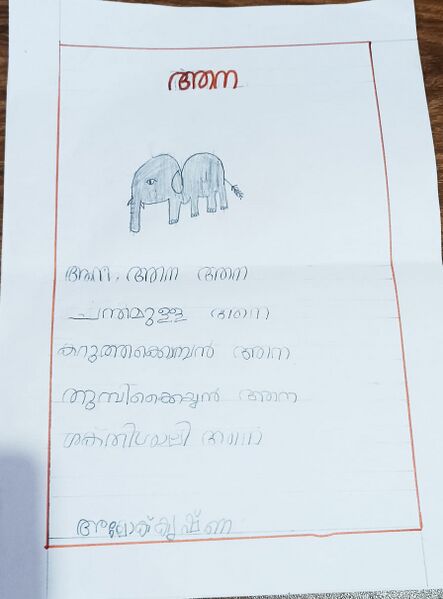 ആന
ആന, ആന ആന
ചന്തമുള്ള ആന
കറുത്തക്കൊമ്പൻ ആന
തുമ്പിക്കൈയ്യൻ ആന
ശക്തിശാലി ആന
അലോക്കൃഷ്ണ